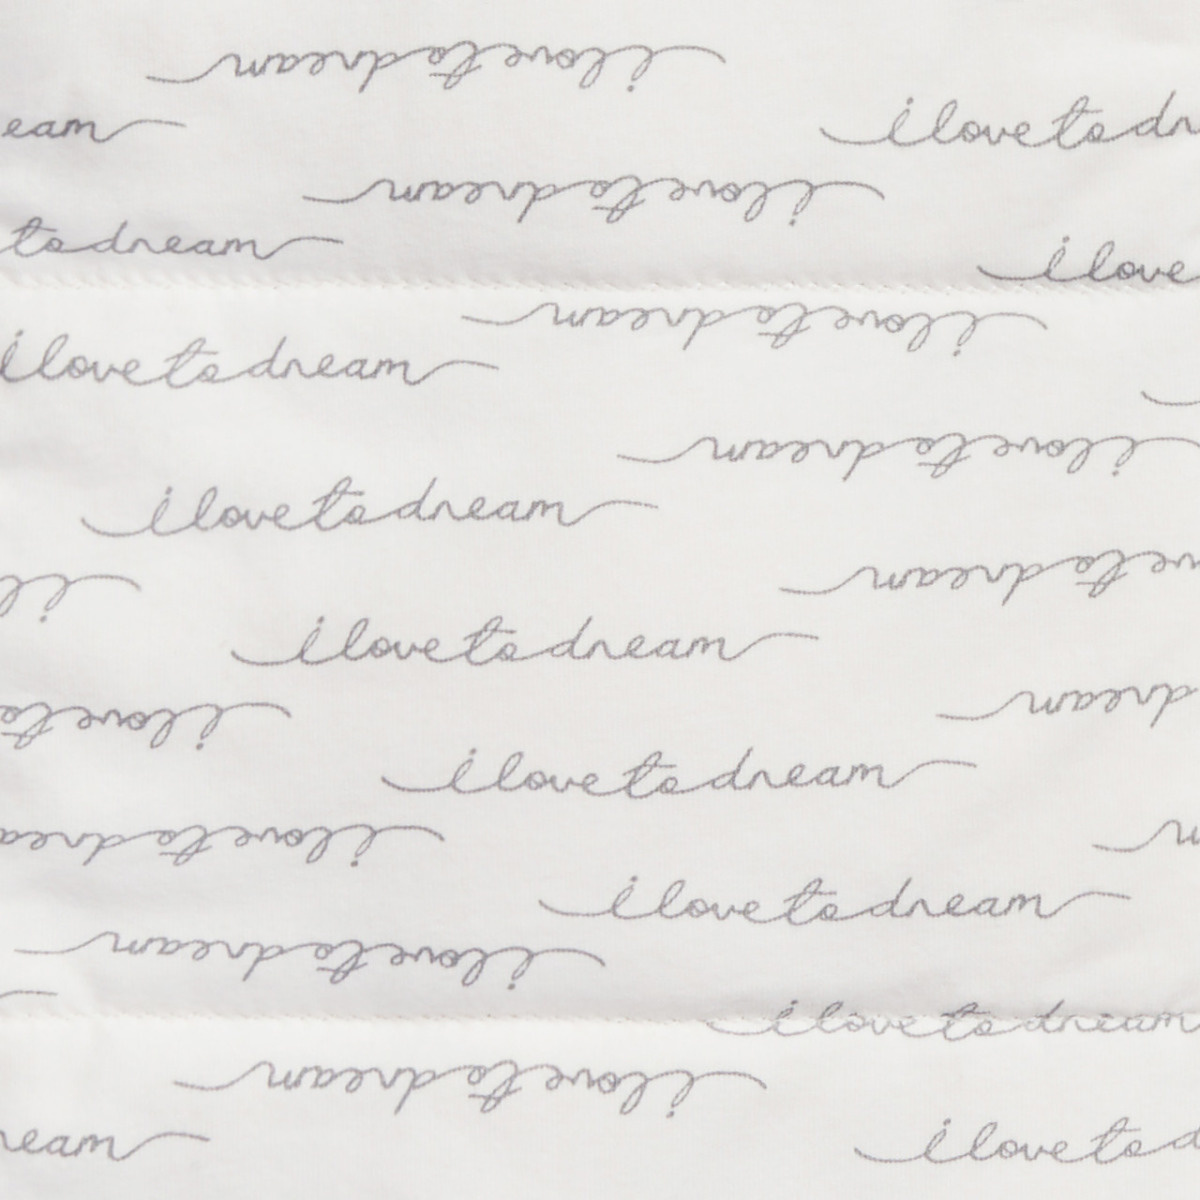 i love to dream
eam
i love to dr
i love to dream
to dream
i love
i love to dream
i love to dream
i love to dream
i love to dream
i l
ve to dream
i love to dream
i love to
dream
i love to dream
i love to drea
m
i love to dream
i love to dream
i love to dream
i love to dream
ream
i love to d